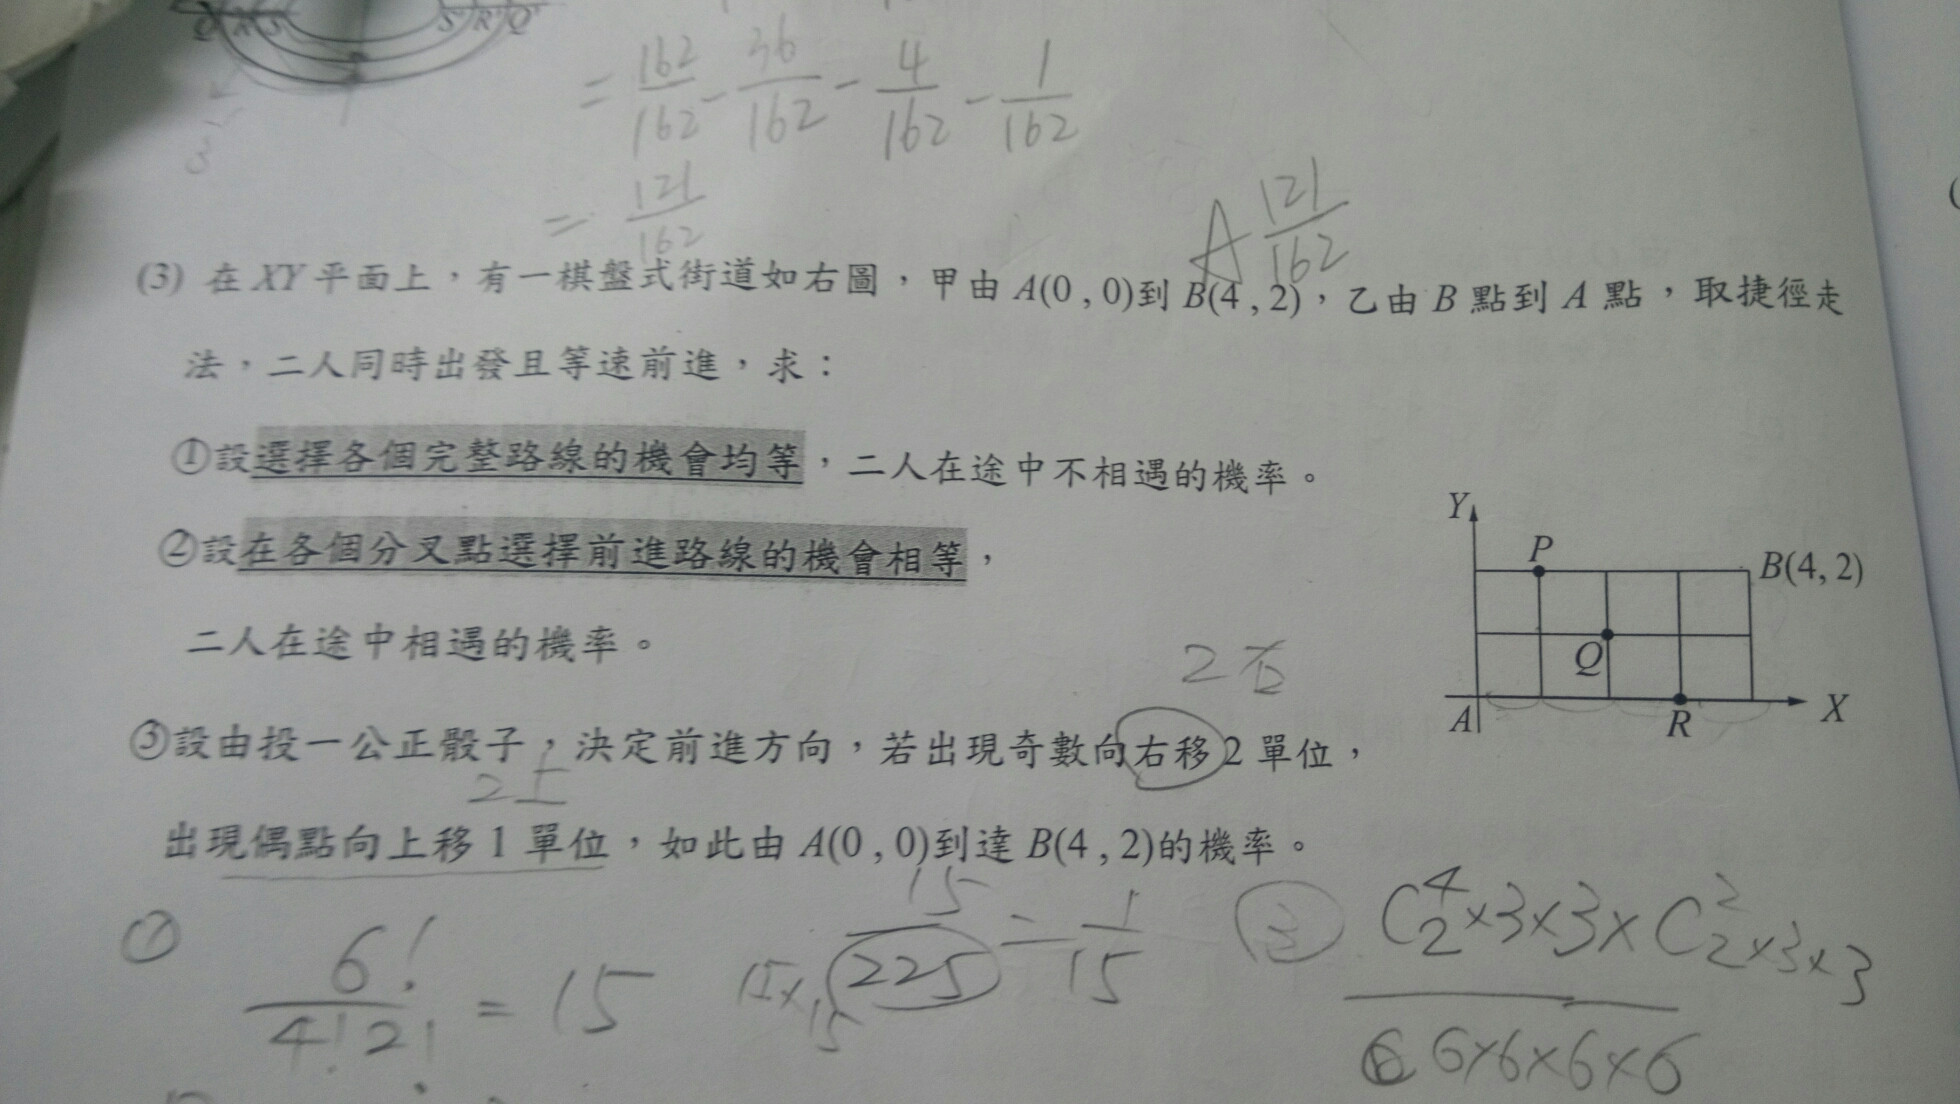 S' R' Q'
= 162/162 - 36/162 - 4/162 - 1/162
= 121/162
A 121/162
(3) 在 XY 平面上，有一棋盤式街道如右圖，甲由 A(0 , 0)到 B(4 , 2)，乙由 B 點到 A 點，取捷徑走
法，二人同時出發且等速前進，求：
①設選擇各個完整路線的機會均等，二人在途中不相遇的機率。
②設在各個分叉點選擇前進路線的機會相等，
二人在途中相遇的機率。
Y
P
B(4, 2)
Q
A
R
X
2右
③設由投一公正骰子，決定前進方向，若出現奇數向右移 2 單位，
2上
出現偶點向上移 1 單位，如此由 A(0 , 0)到達 B(4 , 2)的機率。
① 6!/4!2! = 15
15×15
15/225 = 1/15
③ C⁴₂×3×3×C²₂×3×3
6×6×6×6